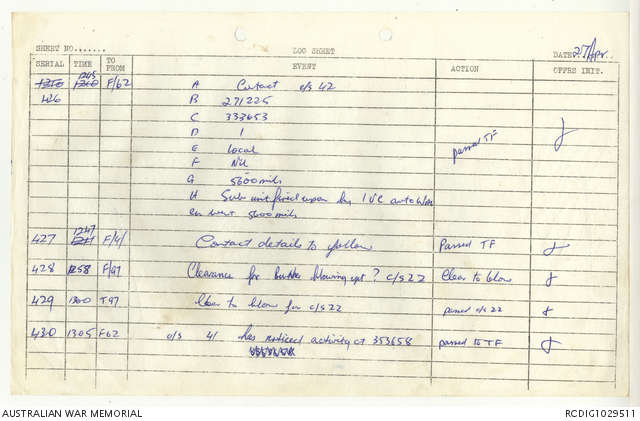 SHEET NO.......
LOG SHEET
DATE 27/Apr.
SERIAL TIME TO FROM EVENT ACTION OPFRS INIT.
426 1245 F/62 A Contact c/s 42
B 271225
C 333653
D 1
E Local passed TF
F Nil
G 5600 mils
H Sub unit fired upon by 1 VC auto Wpn
en went 5600 mils
427 1247 F/4/ Contact details to follow Passed TF
428 1258 F/97 Clearance for bunker blowing up? c/s 22 Clear to blow
429 1300 T97 clear to blow for c/s 22 passed c/s 22
430 1305 F62 c/s 4/ has noticed activity at 353658 passed to TF
AUSTRALIAN WAR MEMORIAL RCDIG1029511